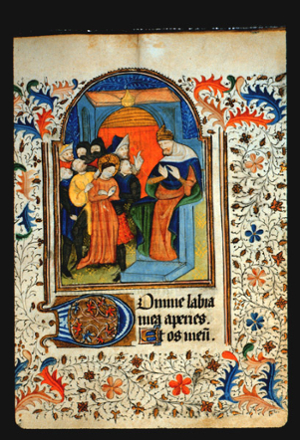 Domine labia
mea aperies.
Et os meū.